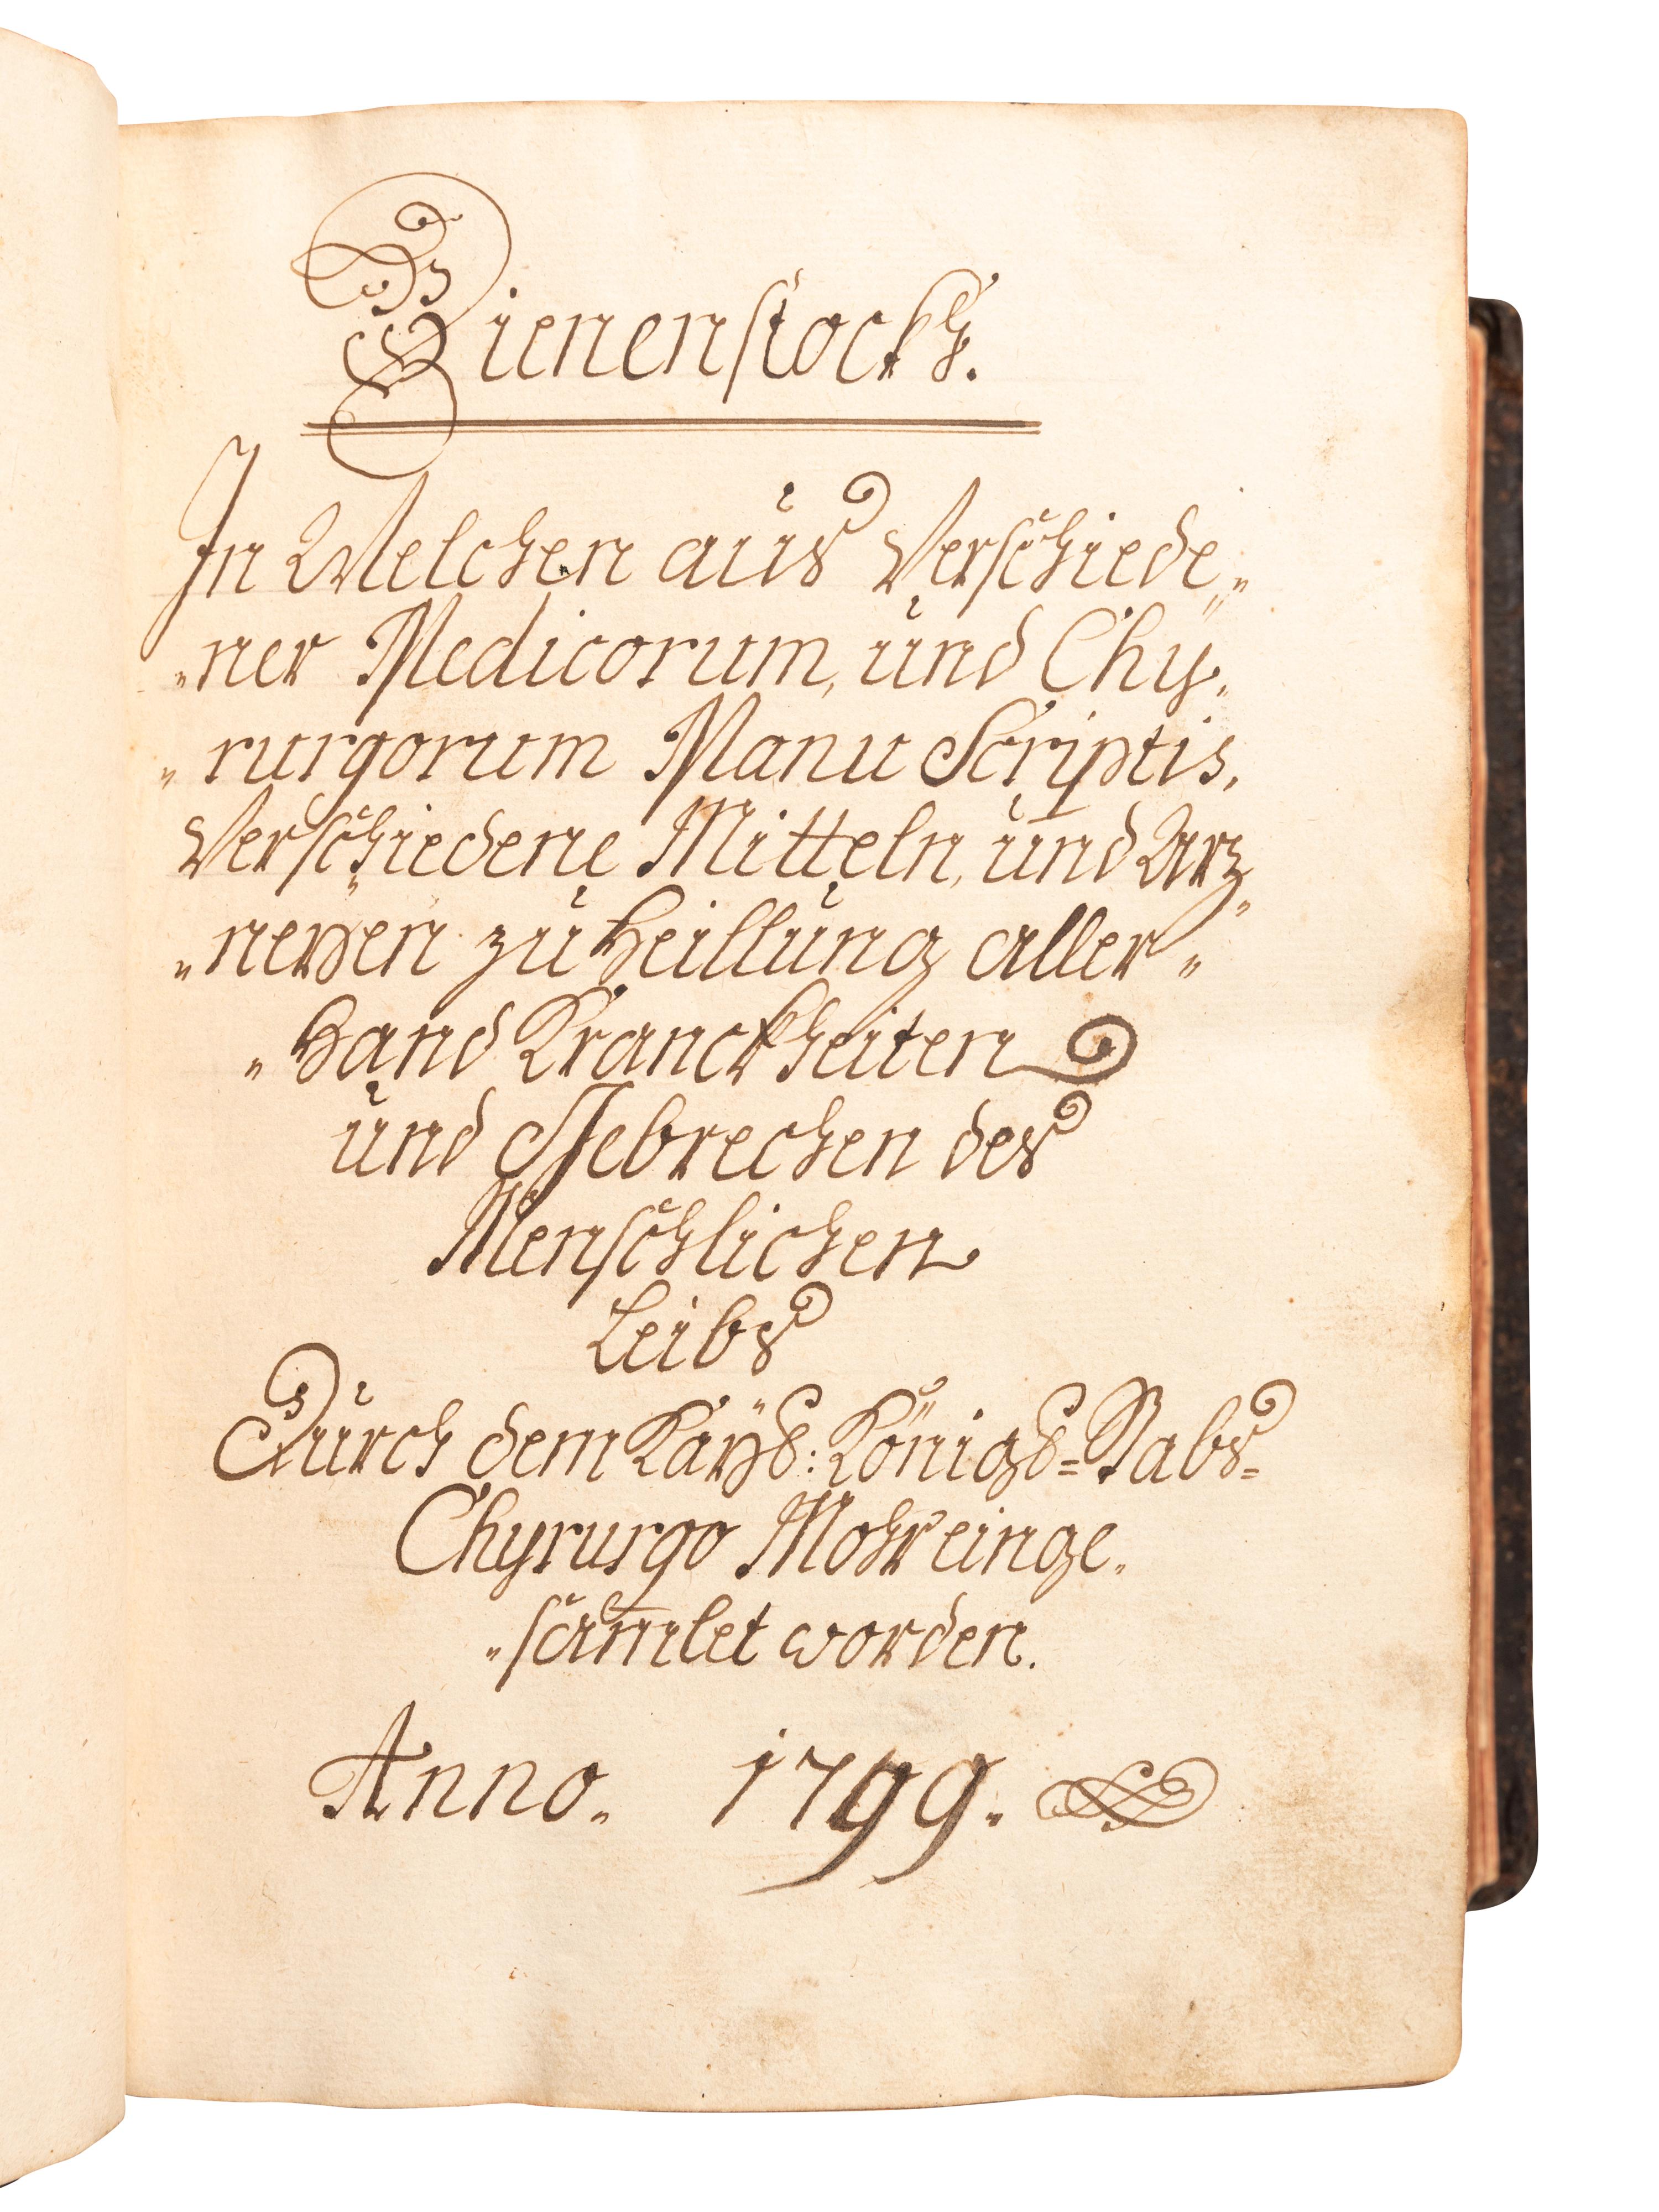 Bienenstock.
In Welchen aus Verschiede„
„ner Medicorum, und Chy„
„rurgorum Manu Scriptis,
Verschiedene Mitteln, und Arz„
„neyen zu Heillung aller„
„hand Kranckheiten
und Gebrechen des
Menschlichen
Leibs
Durch dem Kayß: Königß=Stabs=
Chyrurgo Mohr einge„
„samlet worden.
Anno. 1799.